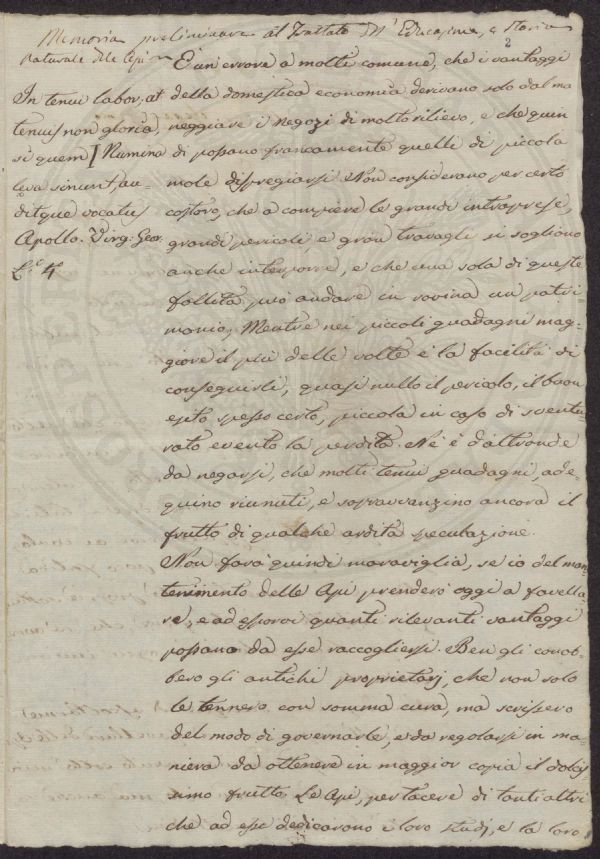 Memoria preliminare al Trattato dell'Educazione, e Storia
naturale delle Api
2
In tenui labor, at
tenuis non gloria,
si quem / Numina
læva sinunt, au-
ditque vocatus
Apollo. Virg: Geor.
L.° 4°
È un errore a molti comune, che i vantaggi
della domestica economia derivano solo dal ma
neggiare i negozi di molto rilievo, e che quin
di possano francamente quelli di piccola
mole dispregiarsi. Non considerano per certo
costoro, che a compiere le grandi intraprese,
grandi pericoli e gran travagli si sogliono
anche interporre, e che una sola di queste
fallita può andare in rovina un patri
monio; Mentre nei piccoli guadagni mag-
giore il più delle volte è la facilità di
conseguirli, quasi nullo il pericolo, il buon
esito spesso certo, piccola in caso di sventu
rato evento la perdita. Nè è d'altronde
da negarsi, che molti tenui guadagni, ade-
quino riuniti, e sopravvanzino ancora il
frutto di qualche ardita speculazione.
Non farà quindi maraviglia, se io del man
tenimento delle Api prenderò oggi a favella
re, e ad esporvi quanti rilevanti vantaggi
possano da esse raccogliersi. Ben gli conob-
bero gli antichi proprietarj, che non solo
le tennero con somma cura, ma scrissero
del modo di governarle, e da regolarsi in ma-
niera da ottenere in maggior copia il dolcis
simo frutto. Le Api, per tacere di tanti altri
che ad esse dedicarono i loro studj, e la loro